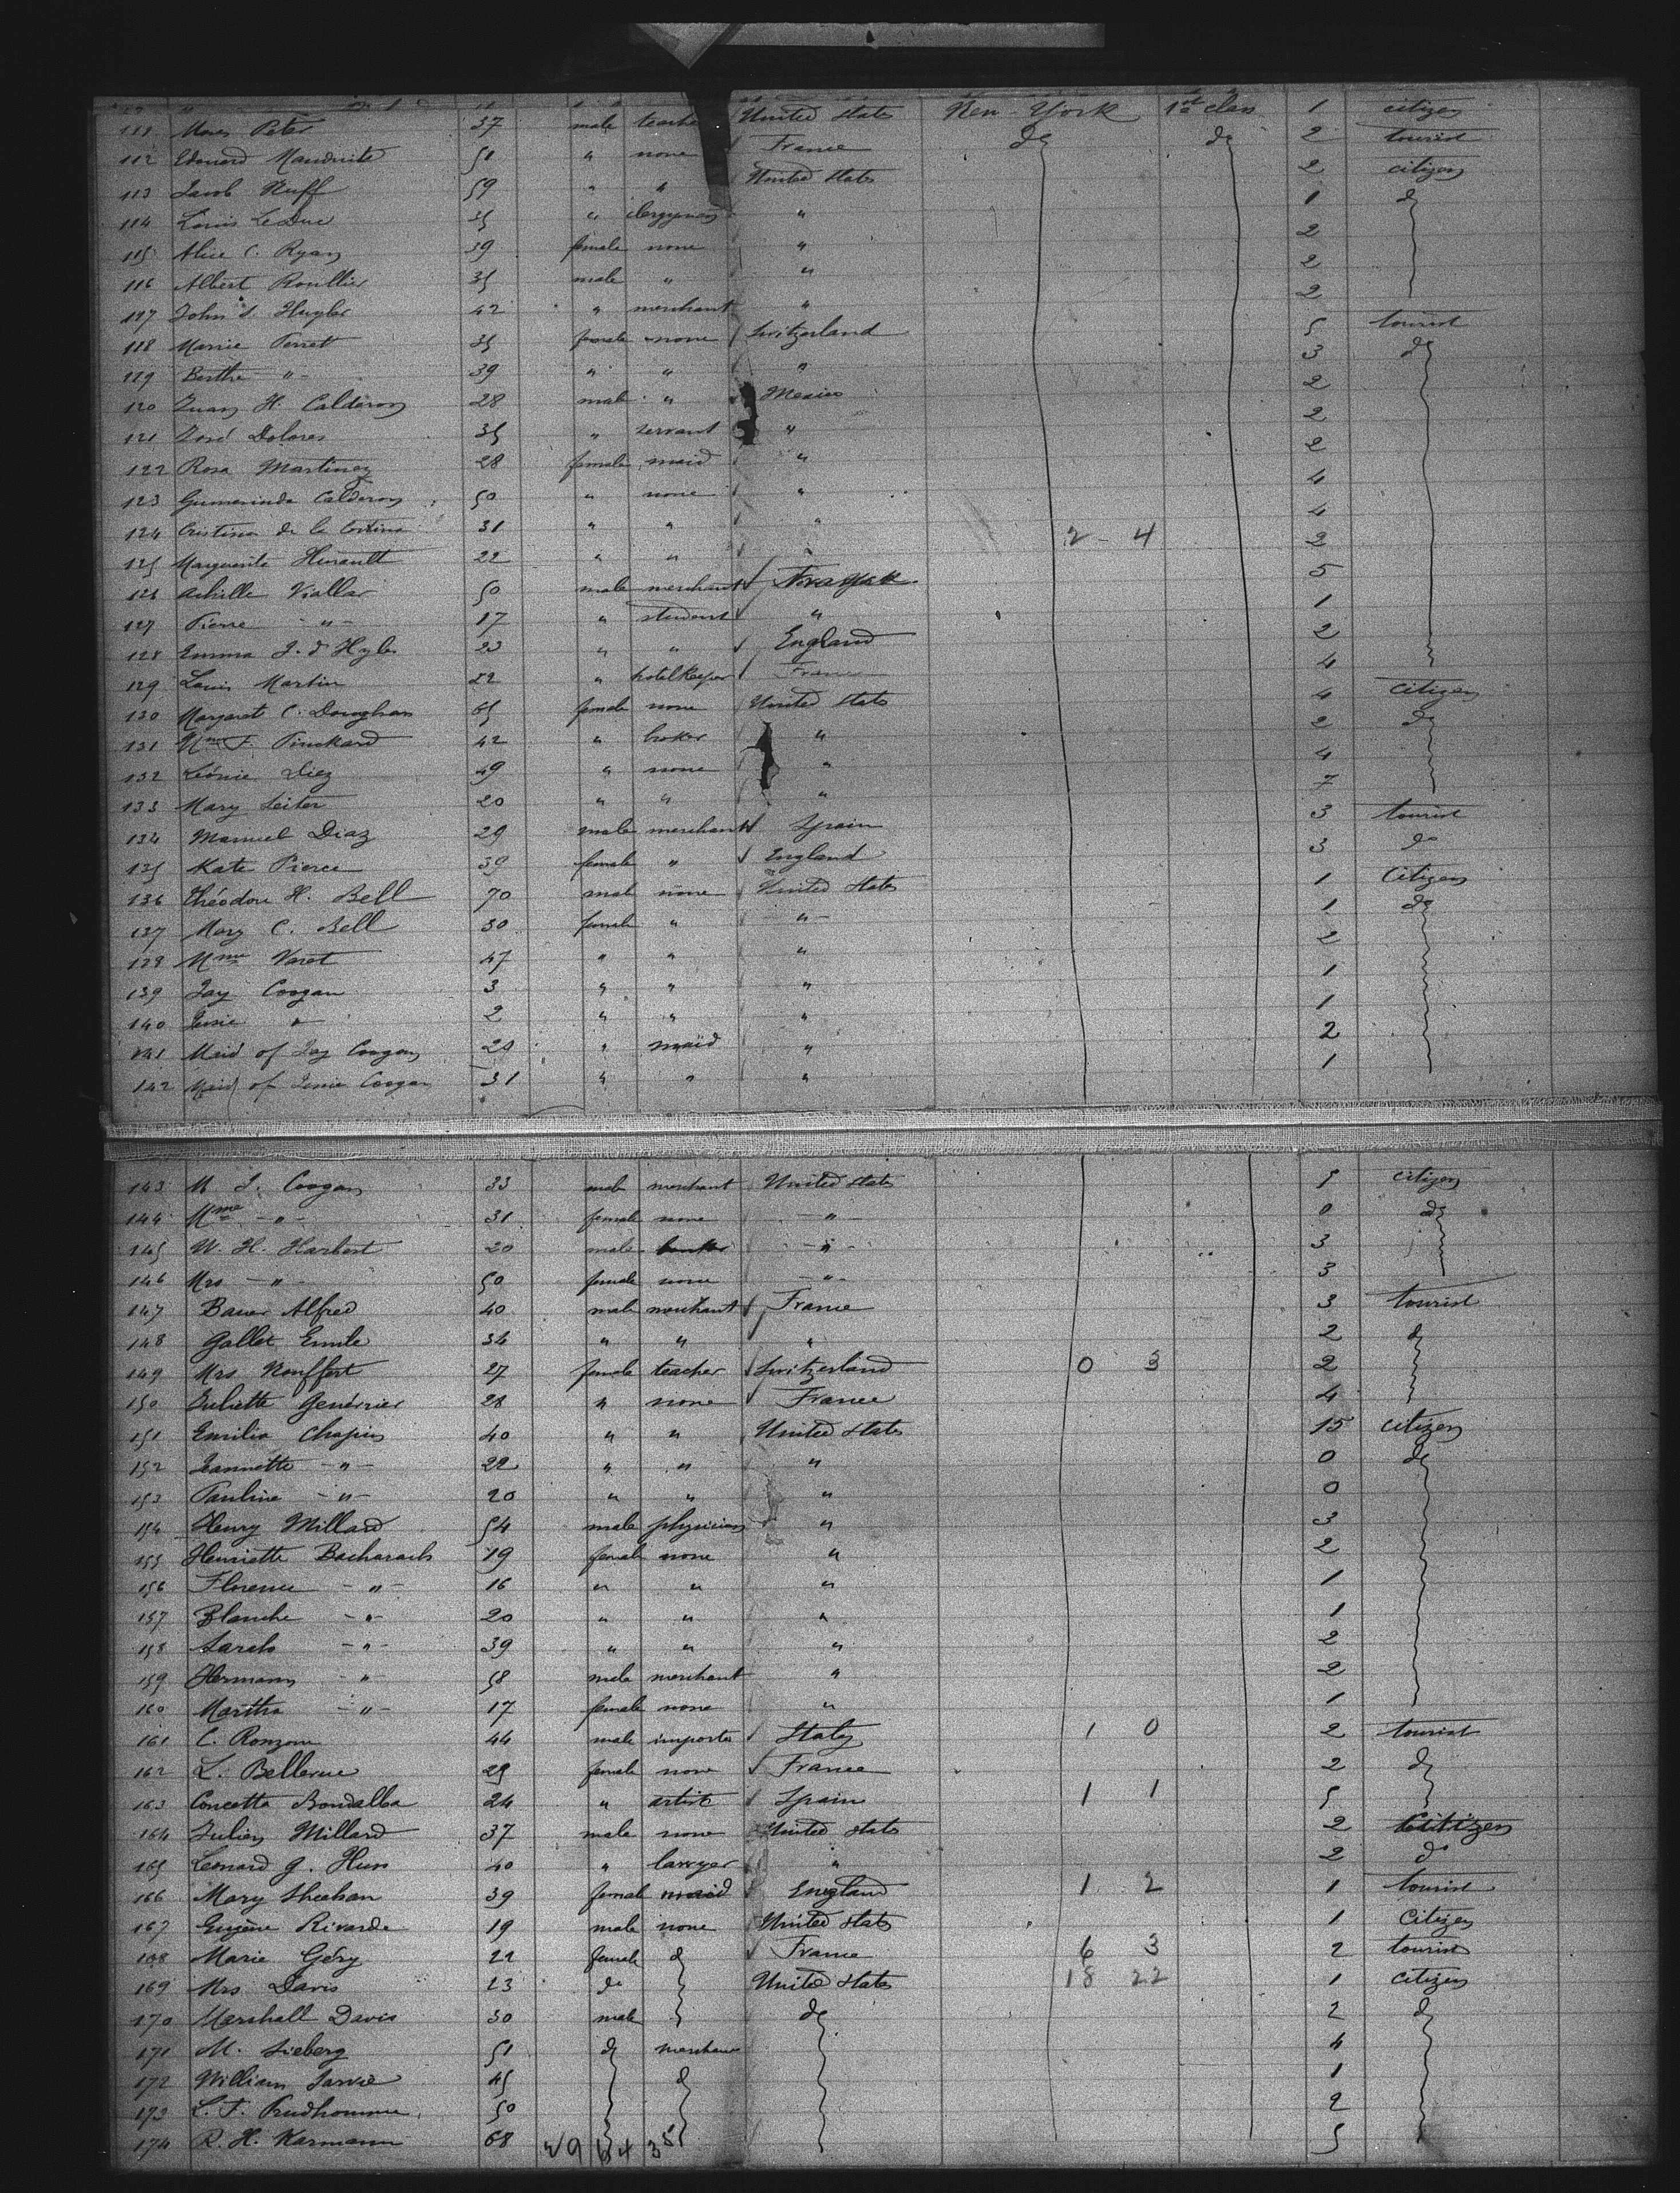 111 Moses Peter 37 male teacher United States New-York 1st class 1 citizen
112 Edouard Mauduite 51 " none France do do 2 tourist
113 Jacob Neuff 59 " " United States 2 citizen
114 Louis LeDuc 35 " clergyman " 1 do
115 Alice C. Ryan 39 female none " 2
116 Albert Roullier 35 male " " 2
117 John S. Huyler 42 " merchant " 2
118 Marie Perret 35 female none Switzerland 5 tourist
119 Berthe " 39 " " " 3 do
120 Juan H. Calderon 28 male " Mexico 2
121 José Dolores 35 " servant " 2
122 Rosa Martinez 28 female maid " 2
123 Gumerinda Calderon 50 " none " 4
124 Cristina de la Cortina 31 " " " 4
125 Marguerite Herault 22 " " " 2 - 4 2
126 Achille Viallar 50 male merchant 5
127 Pierre - " - 17 " student " 1
128 Emma J. d'Hyle 23 " " England 2
129 Louis Martin 52 " hotelkeeper France 4
130 Margaret C. Donoghan 65 female none United States 4 citizen
131 Mme F. Pinckard 42 " broker " 2 do
132 Léonie Diez 49 " none " 4
133 Mary Leiter 20 " " " 7
134 Manuel Diaz 29 male merchant Spain 3 tourist
135 Kate Pierce 39 female " England 3 do
136 Théodore H. Bell 70 male none United States 1 Citizen
137 Mary C. Bell 30 female " " 1 do
138 Mme Varet 47 " " " 2
139 Jay Coogan 3 " " " 1
140 Jessie " 2 " " " 1
141 Maid of Jay Coogan 29 " maid " 2
142 Maid of Jessie Coogan 31 " " " 1
143 M J. Coogan 33 male merchant United States 5 citizen
144 Mme - " - 31 female none - " - 0 do
145 W. H. Harbert 20 male - " - 3
146 Mrs - " - 50 female none - " - 3
147 Bauer Alfred 40 male merchant France 3 tourist
148 Gallet Emile 34 " " " 2 do
149 Mrs Nouffert 27 female teacher Switzerland 0 3 2
150 Juliette Genévrier 28 " none France 4
151 Emilia Chapin 40 " " United States 15 citizen
152 Jeannette - " - 22 " " " 0 do
153 Pauline - " - 20 " " " 0
154 Henry Millard 54 male physician " 3
155 Henriette Bacharach 19 female none " 2
156 Florence - " - 16 " " " 1
157 Blanche - " - 20 " " " 1
158 Sarah - " - 39 " " " 2
159 Hermann " 58 male merchant " 2
160 Martha - " - 17 female none " 1
161 C. Ronzone 44 male importer Italy 1 0 2 tourist
162 L. Bellerue 29 female none France 2 do
163 Concetta Bondalba 24 " artist Spain 1 1 5
164 Julien Millard 37 male none United States 2 Citizen
165 Leonard G. Hun 40 " lawyer " 2 do
166 Mary Sheehan 39 female maid England 1 2 1 tourist
167 Eugène Rivarde 19 male none United States 1 Citizen
168 Marie Géry 22 female do France 6 3 2 tourist
169 Mrs Davis 23 do United States 18 22 1 citizen
170 Marshall Davis 30 male do 2 do
171 M. Sieberg 51 do merchant 4
172 William Jarvie 45 do 1
173 L. F. Prudhomme 50 2
174 R. H. Karmann 68 5